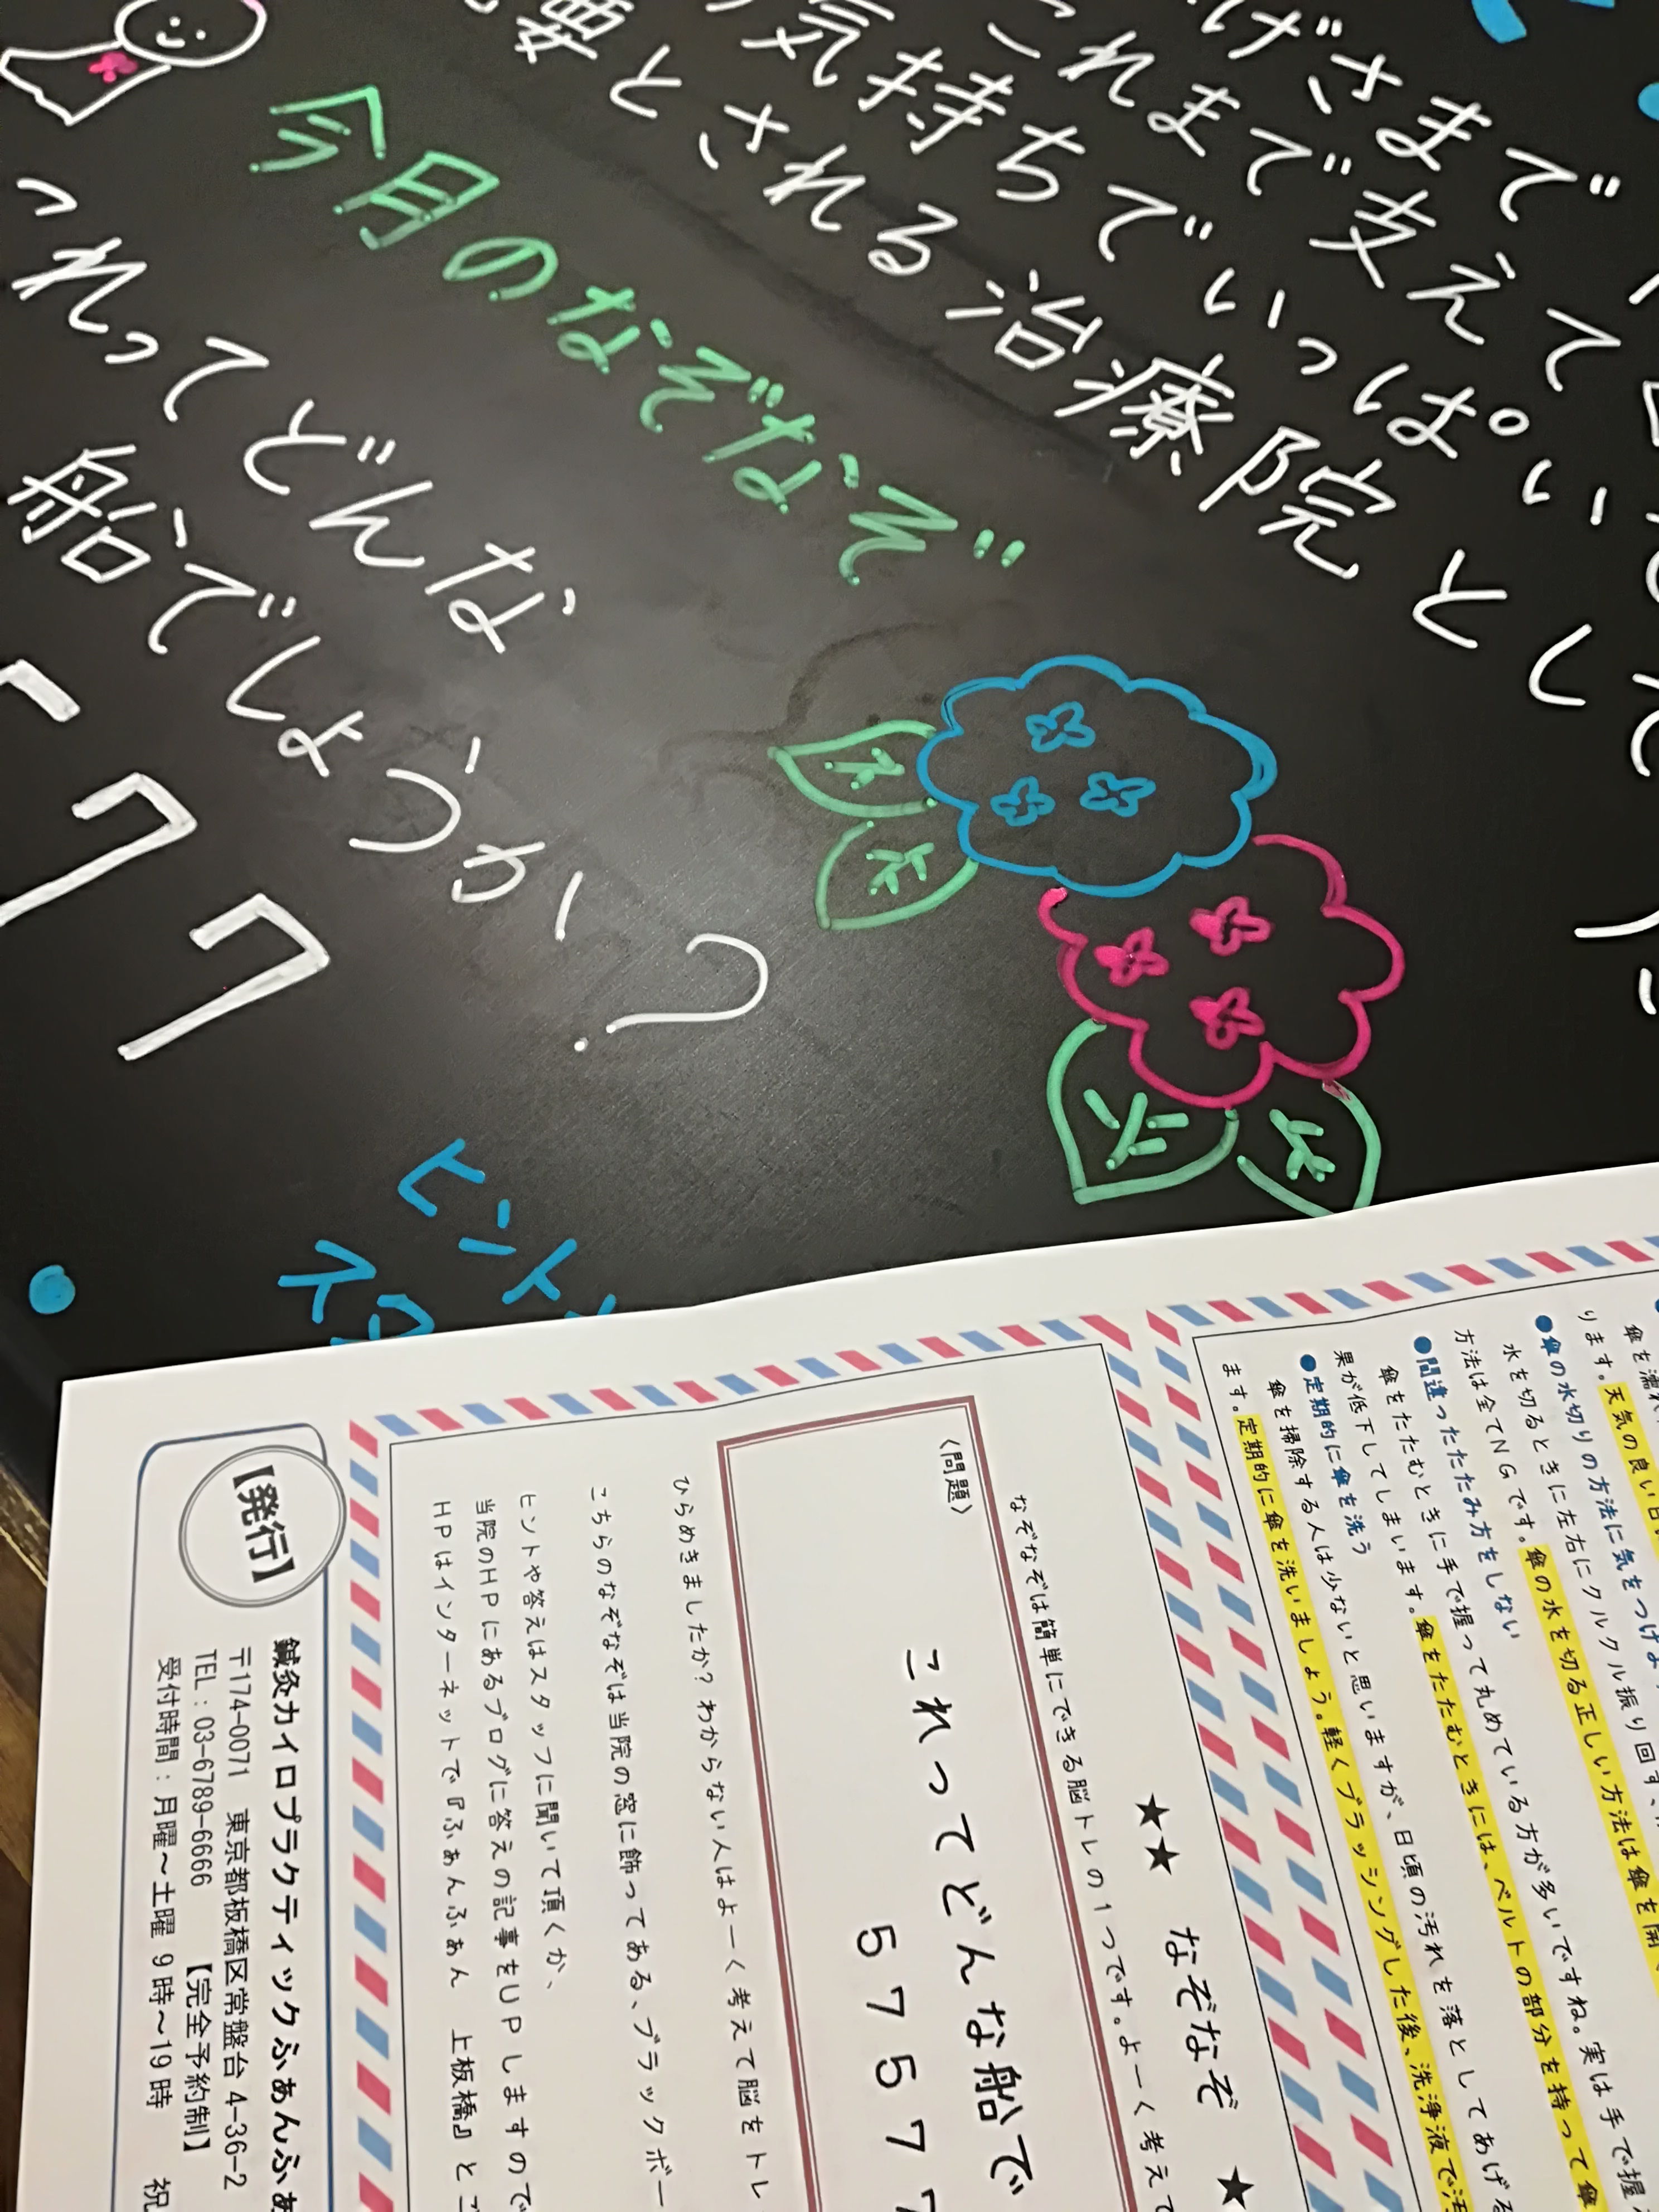 げさまで
これまで支えて
気持ちでいっぱい
要とされる治療院として
今月のなぞなぞ
これってどんな
船でしょうか?
7 7
ヒント
スタ
傘を濡れ
ります。天気の良い日
●傘の水切りの方法に気をつけよ
水を切るときに左右にクルクル振り回す、
方法は全てNGです。傘の水を切る正しい方法は傘を開
●間違ったたたみ方をしない
傘をたたむときに手で握って丸めている方が多いですね。実は手で握
果が低下してしまいます。傘をたたむときには、ベルトの部分を持って傘
●定期的に傘を洗う
傘を掃除する人は少ないと思いますが、日頃の汚れを落としてあげる
ます。定期的に傘を洗いましょう。軽くブラッシングした後、洗浄液で汚
★★ なぞなぞ ★
なぞなぞは簡単にできる脳トレの1つです。よーく考えて
〈問題〉
これってどんな船で
57577
ひらめきましたか?わからない人はよーく考えて脳をトレ
こちらのなぞなぞは当院の窓に飾ってある、ブラックボー
ヒントや答えはスタッフに聞いて頂くか、
当院のHPにあるブログに答えの記事をUPしますので
HPはインターネットで『ふぁんふぁん 上板橋』とご
【発行】
鍼灸カイロプラクティックふぁんふぁ
〒174-0071 東京都板橋区常盤台4-36-2
TEL:03-6789-6666 【完全予約制】
受付時間:月曜~土曜 9時~19時 祝